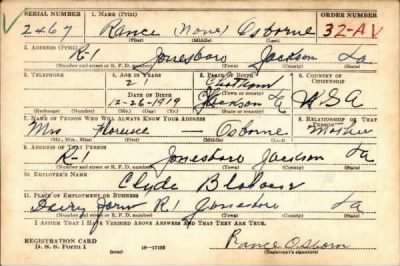 SERIAL NUMBER 1. NAME (Print) ORDER NUMBER
2467 Rance (None) Osborne 32-A V
(First) (Middle) (Last)
2. ADDRESS (Print)
R-1 Jonesboro Jackson La
(Number and street or R. F. D. number) (Town) (County) (State)
3. TELEPHONE 4. AGE IN YEARS 5. PLACE OF BIRTH 6. COUNTRY OF CITIZENSHIP
2 Chatham
DATE OF BIRTH (Town or county)
12-26-1919 Jackson La U.S.A
(Exchange) (Number) (Mo.) (Day) (Yr.) (State or country)
7. NAME OF PERSON WHO WILL ALWAYS KNOW YOUR ADDRESS 8. RELATIONSHIP OF THAT PERSON
Mrs Florence — Osborne Mother
(Mr., Mrs., Miss) (First) (Middle) (Last)
9. ADDRESS OF THAT PERSON
R-1 Jonesboro Jackson La
(Number and street or R. F. D. number) (Town) (County) (State)
10. EMPLOYER'S NAME
Clyde
11. PLACE OF EMPLOYMENT OR BUSINESS
Dairy Farm R1 Jonesboro La
(Number and street or R. F. D. number) (Town) (County) (State)
I AFFIRM THAT I HAVE VERIFIED ABOVE ANSWERS AND THAT THEY ARE TRUE.
REGISTRATION CARD
D. S. S. Form 1 16—17105 Rance Osborn
(Registrant's signature)